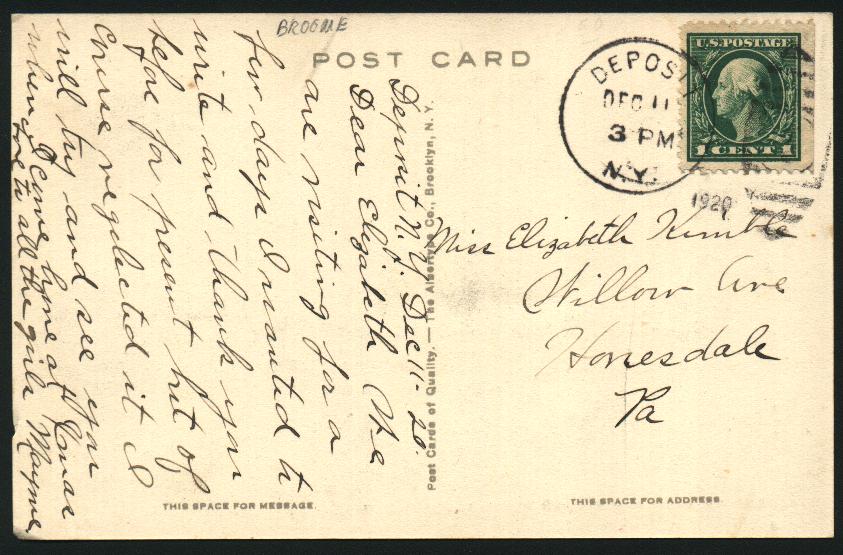 BROOME
POST CARD
DEPOSIT
DEC 11
3 PM
N.Y.
1920
U.S. POSTAGE
1 CENT 1
Deposit N.Y. Dec 11-20.
Dear Elizabeth We
are visiting for a
few days I wanted to
write and thank you
before for present but of
course neglected it I
will try and see you
when I come home at Xmas
Love to all the girls Mayme.
Post Cards of Quality. — The Albertype Co., Brooklyn, N. Y.
Miss Elizabeth Kimble
Willow Ave
Honesdale
Pa
THIS SPACE FOR MESSAGE.
THIS SPACE FOR ADDRESS.